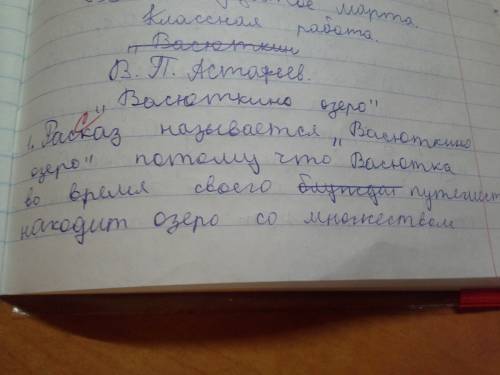 марта.
Классная работа.
„Васюткин
В. П. Астафеев.
„Васюткино озеро"
1. Расказ называется „Васюткино
озеро" потому что Васютка
во время своего блуждан путешест
находит озеро со множеством